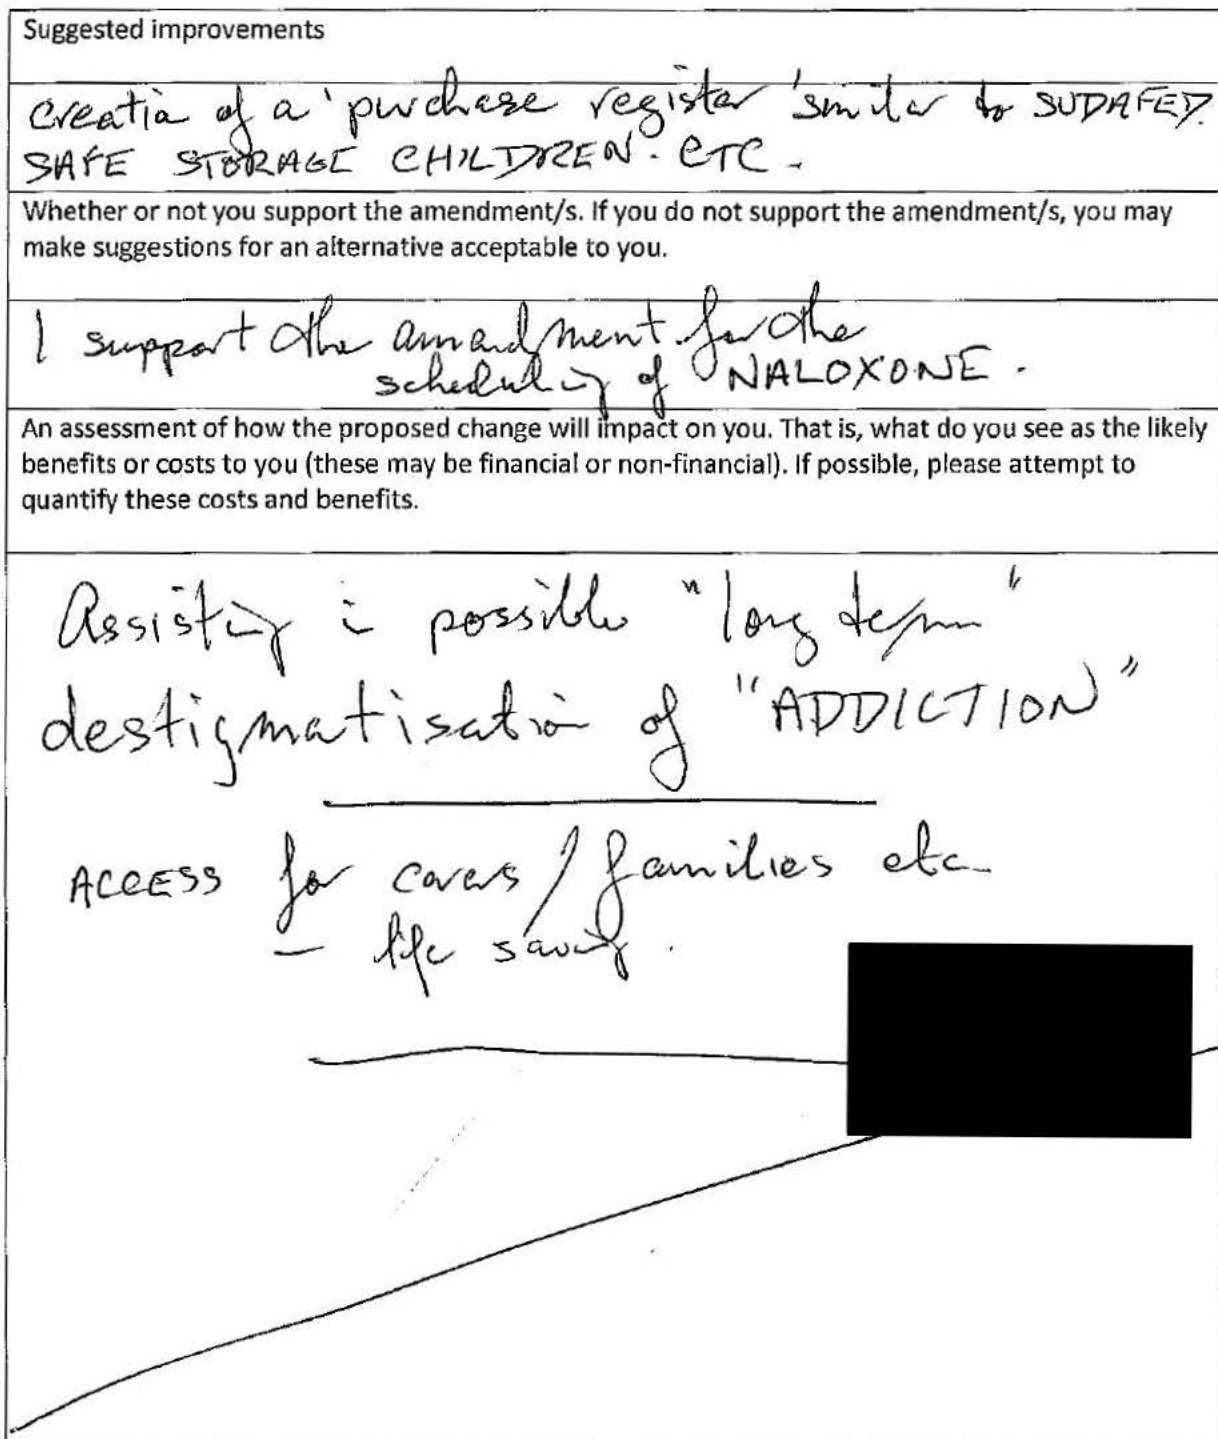 Suggested improvements
creation of a 'purchase register' similar to SUDAFED.
SAFE STORAGE CHILDREN. ETC.
Whether or not you support the amendment/s. If you do not support the amendment/s, you may
make suggestions for an alternative acceptable to you.
I support the amendment for the
scheduling of NALOXONE.
An assessment of how the proposed change will impact on you. That is, what do you see as the likely
benefits or costs to you (these may be financial or non-financial). If possible, please attempt to
quantify these costs and benefits.
Assisting in possible "long term"
destigmatisation of "ADDICTION"
ACCESS for carers / families etc
- life saving.